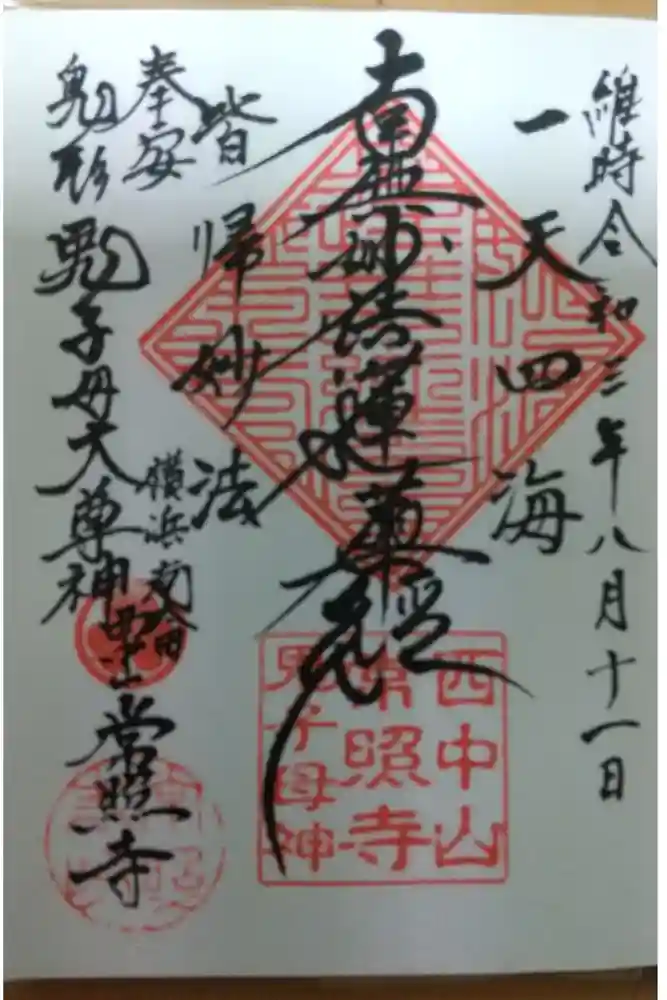 維時令和三年八月十一日
一天四海
南無妙法蓮華経
皆帰妙法
奉安
鬼形鬼子母大尊神
横浜南太田
西中山常照寺
西中山
常照寺
鬼子母神